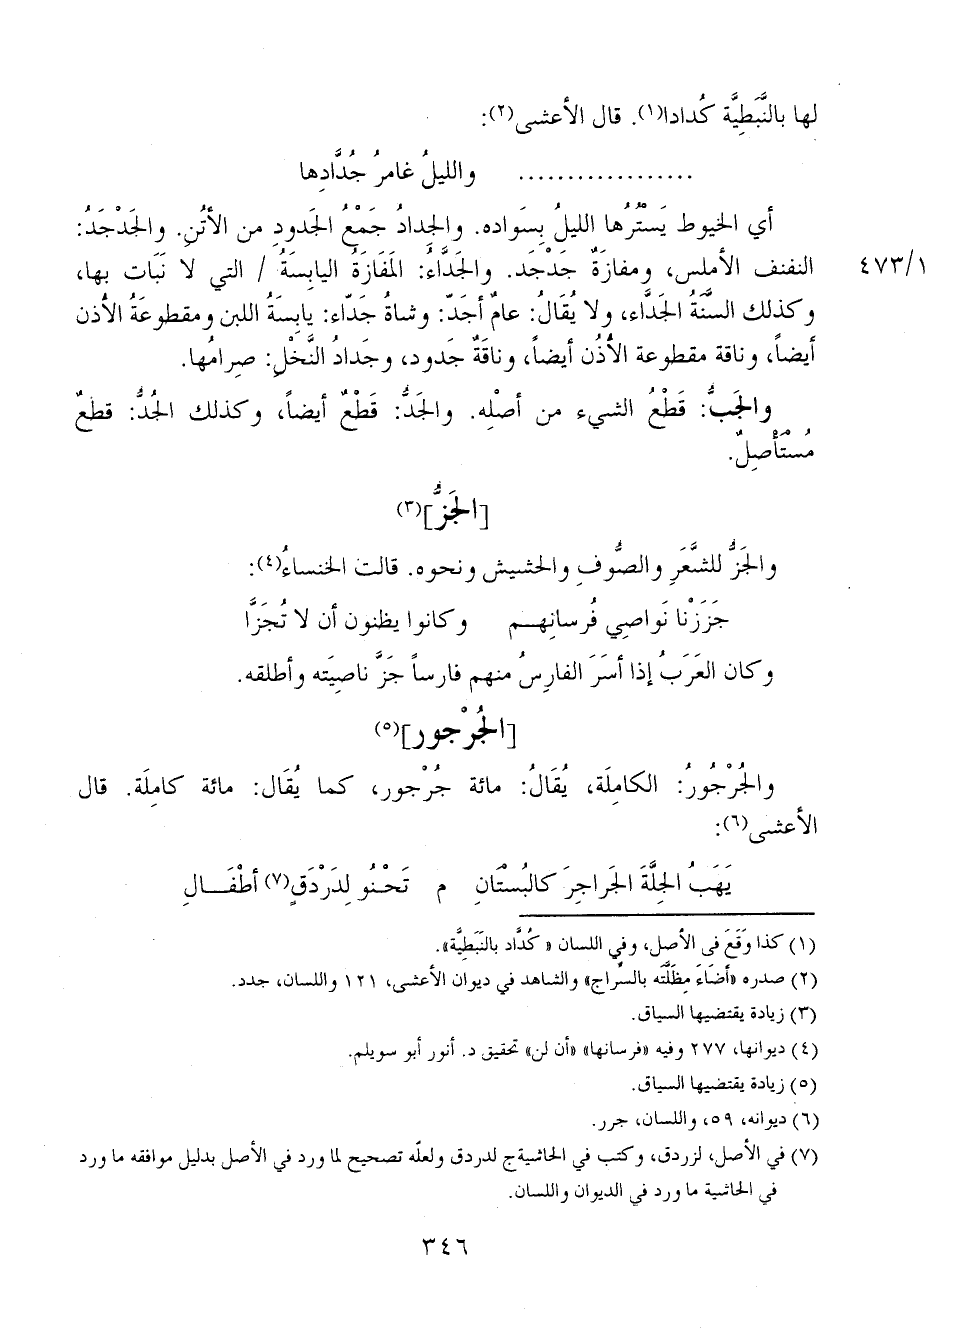 لها بالنَّبَطِيَّة كُدادا(١). قال الأعشى(٢):
.................. والليلُ غامرُ جُدَّادِها
أي الخيوط يَسْتُرُها الليلُ بِسَواده. والجِدادُ جَمْعُ الجَدودِ من الأتُنِ. والجَدْجَدُ:
النفنف الأملس، ومفازَةٌ جَدْجَد. والجَدَّاءُ: المَفَازَةُ اليابِسَةُ / التي لا نَبَات بها،
٤٧٣/١
وكذلك السَّنَةُ الجَدَّاء، ولا يُقَالُ: عامٌ أجَدّ: وشاةُ جَدّاء: يابِسَةُ اللبن ومقطوعَةُ الأذن
أيضاً، وناقة مقطوعة الأُذُن أيضاً، وناقَةٌ جَدود، وجَدادُ النَّخْلِ: صِرامُها.
والجَبُّ: قَطْعُ الشيء من أصْلِه. والجَدُّ: قَطْعٌ أيضاً، وكذلك الجُدُّ: قطعٌ
مُسْتَأْصِلٌ.
[الجَزُّ](٣)
والجَزُّ للشَّعَرِ والصُّوفِ والحشيش ونحوه. قالت الخنساءُ(٤):
جَزَزْنا نَواصِي فُرسانِهم وكانوا يظنون أن لا تُجَزَّا
وكان العَرَبُ إذا أسَرَ الفارِسُ منهم فارساً جَزَّ ناصِيَته وأطلقه.
[الجُرْجور](٥)
والجُرْجُورُ: الكامِلَة، يُقَالُ: مائة جُرْجور، كما يُقَال: مائة كامِلَة. قال
الأعشى(٦):
يَهَبُ الجِلَّةَ الجَراجِرَ كالبُسْتَانِ م تَحْنُو لِدَرْدَقٍ(٧) أطْفَالِ
(١) كذا وَقَعَ في الأصل، وفي اللسان «كُدَّاد بالنَبَطِيَّة».
(٢) صدره «أضَاءَ مِظَلَّتَه بالسِّراج» والشاهد في ديوان الأعشى، ١٢١ واللسان، جدد.
(٣) زيادة يقتضيها السياق.
(٤) ديوانها، ٢٧٧ وفيه «فرسانها» «أن لن» تحقيق د. أنور أبو سويلم.
(٥) زيادة يقتضيها السياق.
(٦) ديوانه، ٥٩، واللسان، جرر.
(٧) في الأصل، لزردق، وكتب في الحاشيةج لدردق ولعلّه تصحيح لما ورد في الأصل بدليل موافقه ما ورد
في الحاشية ما ورد في الديوان واللسان.
٣٤٦